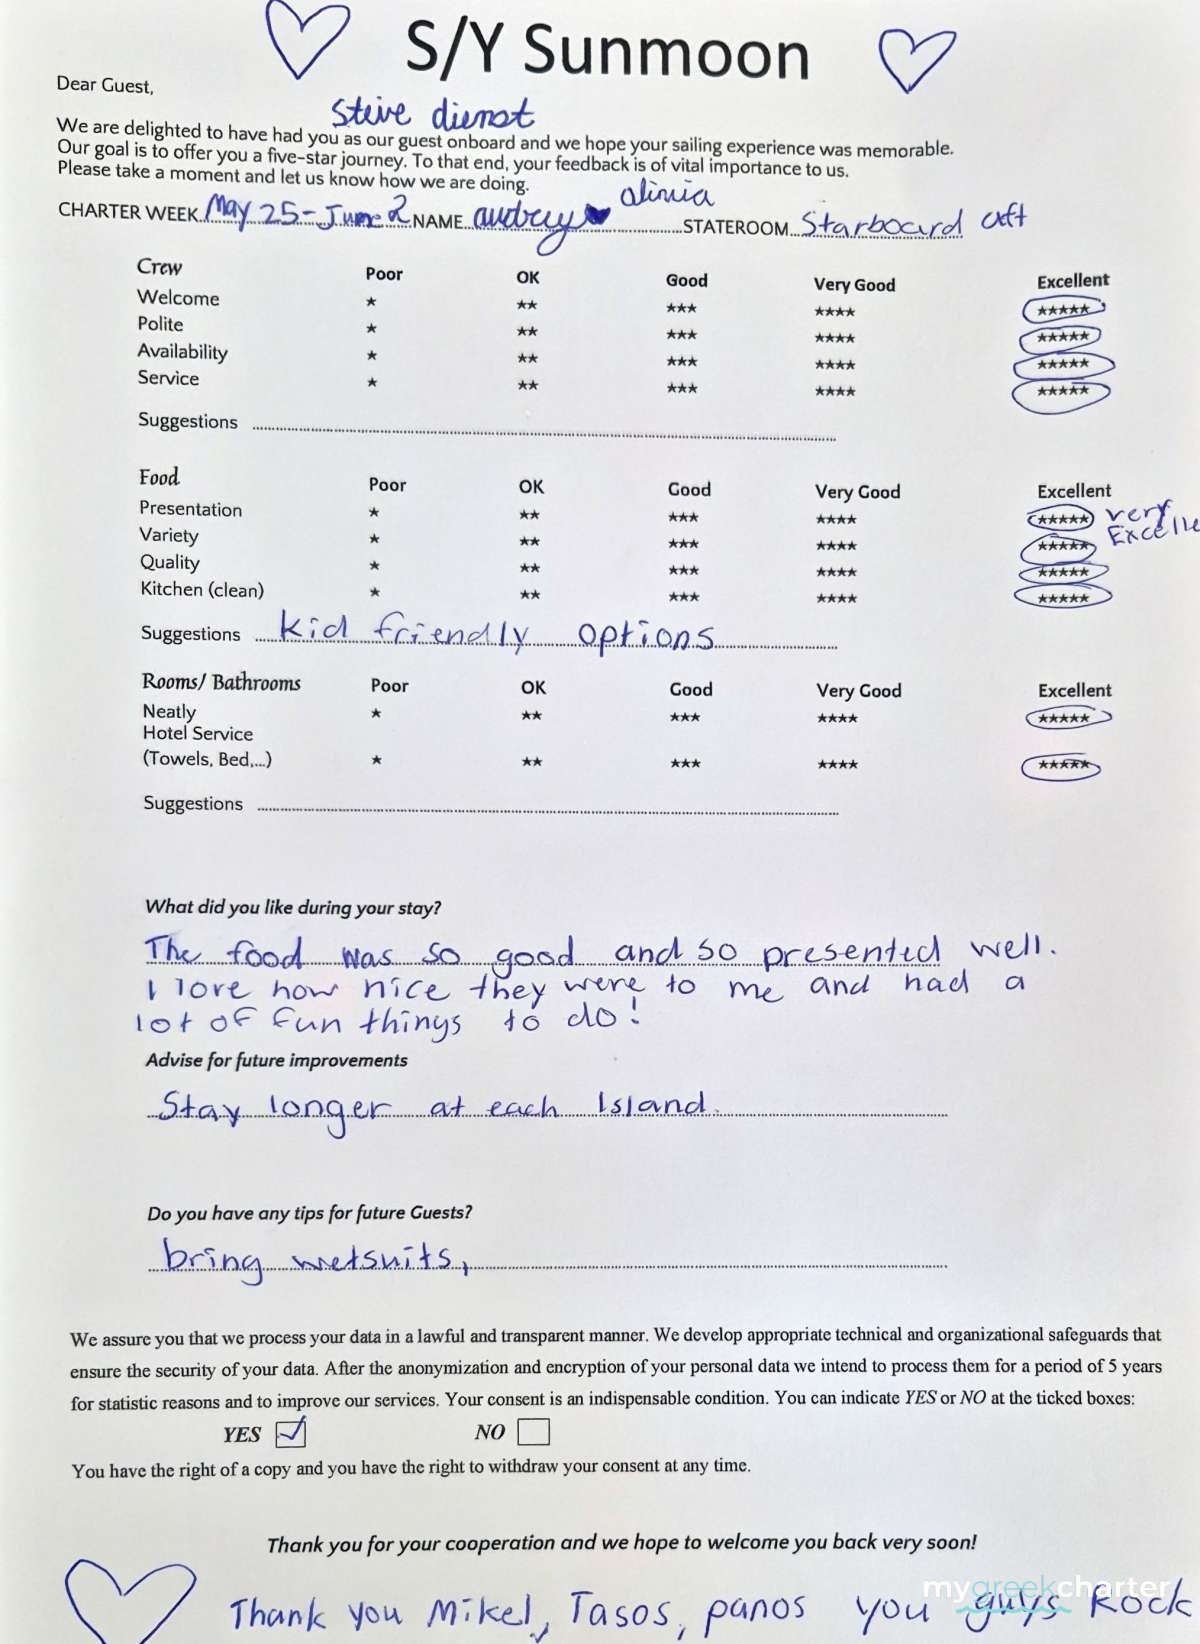 S/Y Sunmoon
Dear Guest,
Steive dienst
We are delighted to have had you as our guest onboard and we hope your sailing experience was memorable.
Our goal is to offer you a five-star journey. To that end, your feedback is of vital importance to us.
Please take a moment and let us know how we are doing.
alinia
CHARTER WEEK May 25-June 2 NAME audrey STATEROOM Starboard aft
Crew Poor OK Good Very Good Excellent
Welcome ★ ★★ ★★★ ★★★★ ★★★★★
Polite ★ ★★ ★★★ ★★★★ ★★★★★
Availability ★ ★★ ★★★ ★★★★ ★★★★★
Service ★ ★★ ★★★ ★★★★ ★★★★★
Suggestions
Food Poor OK Good Very Good Excellent
Presentation ★ ★★ ★★★ ★★★★ ★★★★★ very
Variety ★ ★★ ★★★ ★★★★ ★★★★★ Excelle
Quality ★ ★★ ★★★ ★★★★ ★★★★★
Kitchen (clean) ★ ★★ ★★★ ★★★★ ★★★★★
Suggestions kid friendly options
Rooms/ Bathrooms Poor OK Good Very Good Excellent
Neatly ★ ★★ ★★★ ★★★★ ★★★★★
Hotel Service
(Towels, Bed,...) ★ ★★ ★★★ ★★★★ ★★★★★
Suggestions
What did you like during your stay?
The food was so good and so presented well.
I love how nice they were to me and had a
lot of fun things to do!
Advise for future improvements
Stay longer at each Island.
Do you have any tips for future Guests?
bring wetsuits,
We assure you that we process your data in a lawful and transparent manner. We develop appropriate technical and organizational safeguards that
ensure the security of your data. After the anonymization and encryption of your personal data we intend to process them for a period of 5 years
for statistic reasons and to improve our services. Your consent is an indispensable condition. You can indicate YES or NO at the ticked boxes:
YES NO
You have the right of a copy and you have the right to withdraw your consent at any time.
Thank you for your cooperation and we hope to welcome you back very soon!
mygreekcharter
Thank you Mikel, Tasos, panos you guys Rock